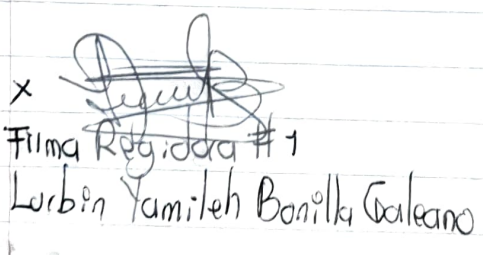 x
Firma Regidora # 1
Lurbin Yamileh Bonilla Galeano